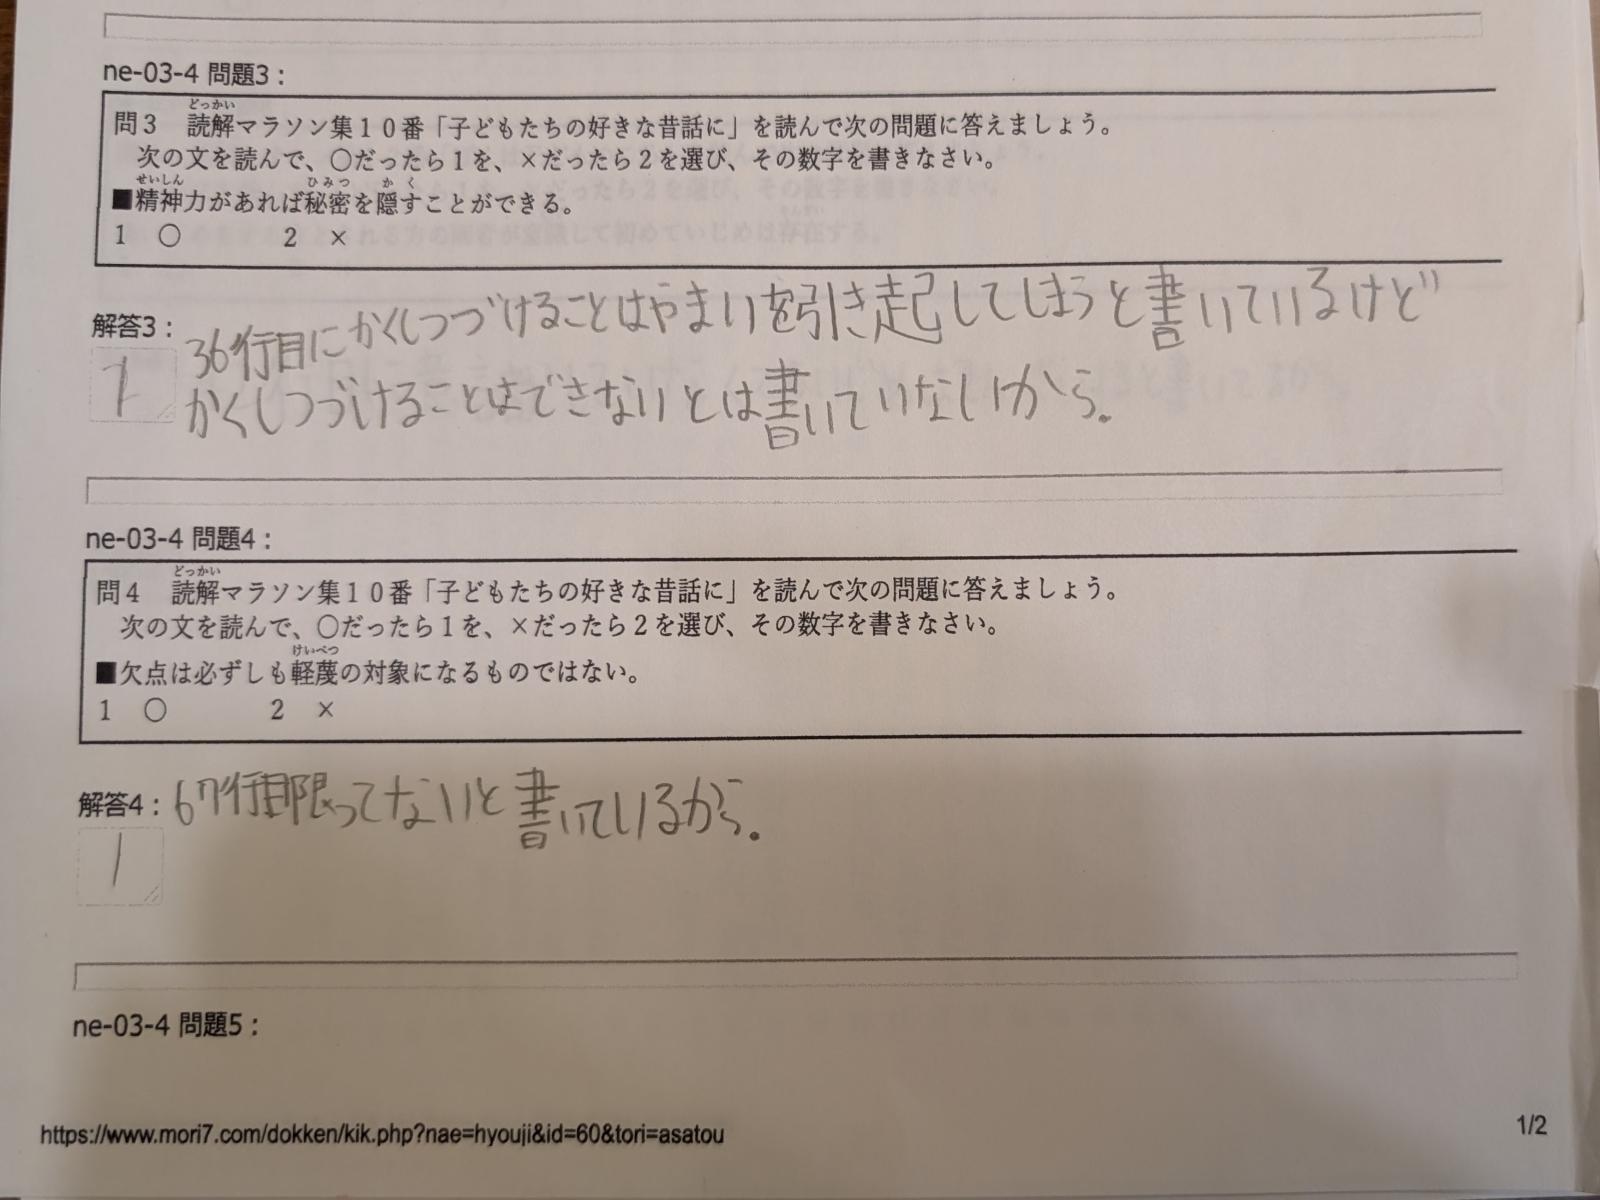 ne-03-4 問題3：
どっかい
問3　読解マラソン集10番「子どもたちの好きな昔話に」を読んで次の問題に答えましょう。
次の文を読んで、〇だったら1を、×だったら2を選び、その数字を書きなさい。
せいしん　ひみつ　かく
■精神力があれば秘密を隠すことができる。
1　〇　　2　×
解答3：
1
36行目にかくしつづけることはやまいを引き起してしまうと書いているけど
かくしつづけることはできないとは書いていないから。
ne-03-4 問題4：
どっかい
問4　読解マラソン集10番「子どもたちの好きな昔話に」を読んで次の問題に答えましょう。
次の文を読んで、〇だったら1を、×だったら2を選び、その数字を書きなさい。
けいべつ
■欠点は必ずしも軽蔑の対象になるものではない。
1　〇　　2　×
解答4：67行目限ってないと書いているから。
1
ne-03-4 問題5：
https://www.mori7.com/dokken/kik.php?nae=hyouji&id=60&tori=asatou
1/2